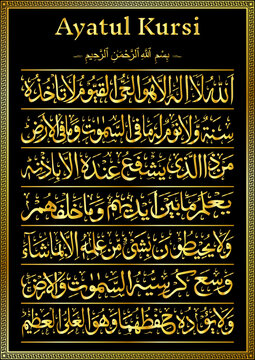 Ayatul Kursi
بِسْمِ اللهِ الرَّحْمٰنِ الرَّحِيْمِ
الله لا اله الا هو الحي القيوم لا تاخذه
سنة ولا نوم له ما في السموت وما في الارض
من ذا الذي يشفع عنده الا باذنه
يعلم ما بين ايديهم وما خلفهم
ولا يحيطون بشئ من علمه الا بما شاء
وسع كرسيه السموت والارض
ولا يؤده حفظهما وهو العلي العظيم